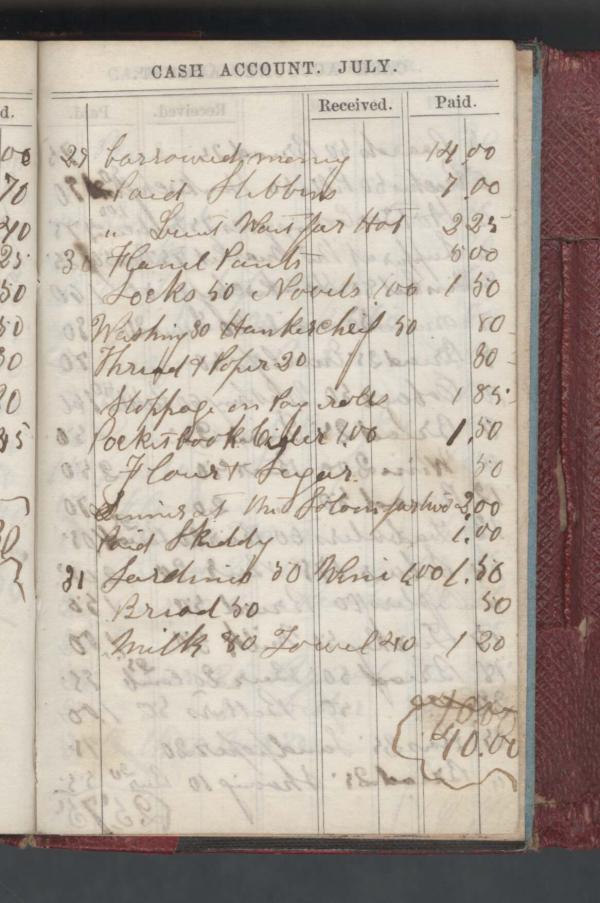 CASH ACCOUNT. JULY.
Received. Paid.
29 borrowed money 14.00
Paid Stebbins 7.00
" Lieut Wait for Hat 2 25
30 Flanel Pants 5 00
Socks 50 Novels 1.00 1 50
Washing 80 Hankercheif 50 80
Thread & Paper 30 30
Stoppage on Pay rolls 1 85
Pocketbook Cider 1.00 1.50
Flour & Sugar 50
Dinner at the for two 2.00
Paid Skiddy 1.00
31 Sardines 50 Wine 1.00 1.50
Bread 50 50
Milk 80 Towel 40 1 20
40.00
40.00